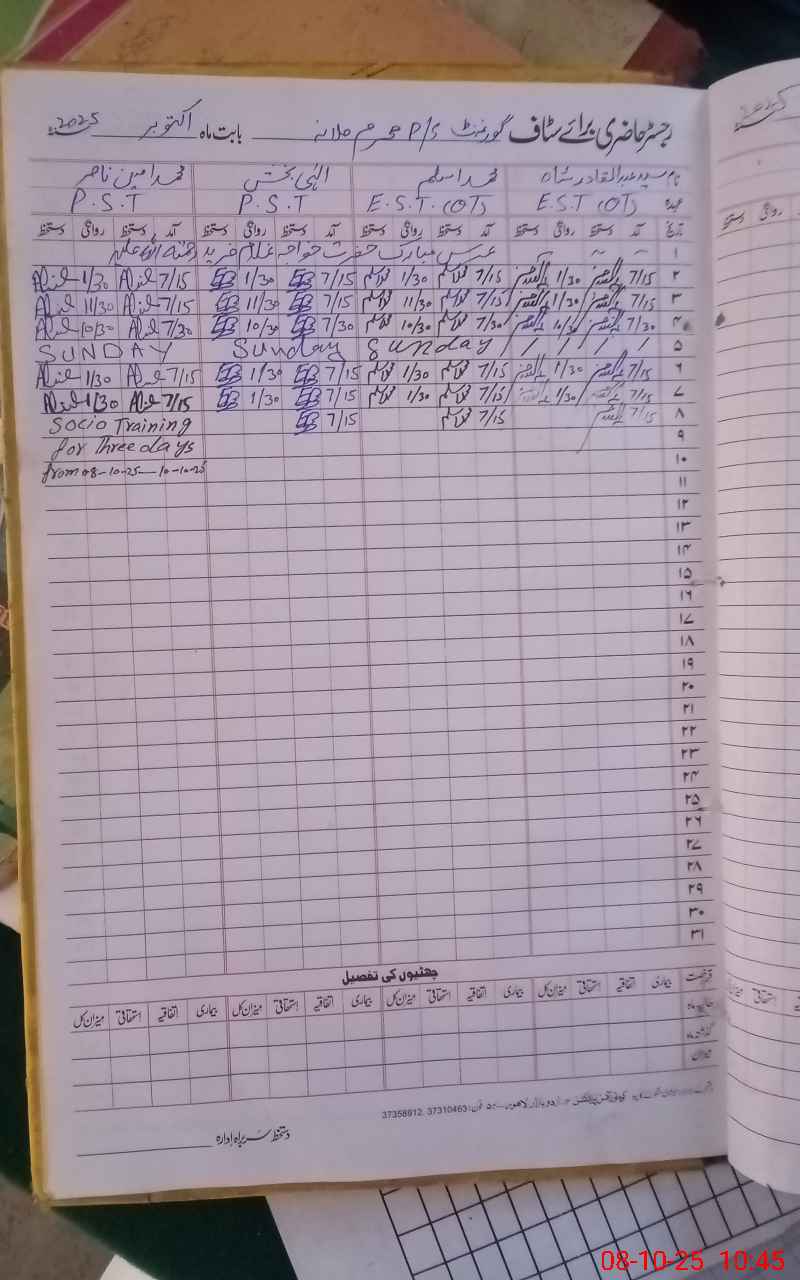 رجسٹر حاضری برائے سٹاف گورنمنٹ P/S محرم ملانہ بابت ماہ اکتوبر سنہ 2025
نام سید عبدالقادر شاہ محمد اسلم الٰہی بخش محمد امین ناصر
عہدہ E.S.T (OT) E.S.T. (OT) P.S.T P.S.T
تاریخ آمد دستخط روانگی دستخط آمد دستخط روانگی دستخط آمد دستخط روانگی دستخط آمد دستخط روانگی دستخط
۱ عرس مبارک حضرت خواجہ غلام فرید رحمتہ اللہ علیہ
۲ 7/15 1/30 7/15 1/30 7/15 1/30 7/15 1/30
۳ 7/15 1/30 7/15 11/30 7/15 11/30 7/15 11/30
۴ 7/30 10/30 7/30 10/30 7/30 10/30 7/30 10/30
۵ Sunday Sunday SUNDAY
۶ 7/15 1/30 7/15 1/30 7/15 1/30 7/15 1/30
۷ 7/15 1/30 7/15 1/30 7/15 1/30 7/15 1/30
۸ 7/15 7/15 7/15 Socio Training
۹ for three days
۱۰ from 08-10-25 — 10-10-25
۱۱
۱۲
۱۳
۱۴
۱۵
۱۶
۱۷
۱۸
۱۹
۲۰
۲۱
۲۲
۲۳
۲۴
۲۵
۲۶
۲۷
۲۸
۲۹
۳۰
۳۱
چھٹیوں کی تفصیل
رخصت بیماری اتفاقیہ استحقاقی میزان کل بیماری اتفاقیہ استحقاقی میزان کل بیماری اتفاقیہ استحقاقی میزان کل بیماری اتفاقیہ استحقاقی میزان کل
حالیہ ماہ
گذشتہ ماہ
میزان
اردو بازار لاہور فون: 37310463, 37358912
دستخط سربراہ ادارہ
08-10-25 10:45